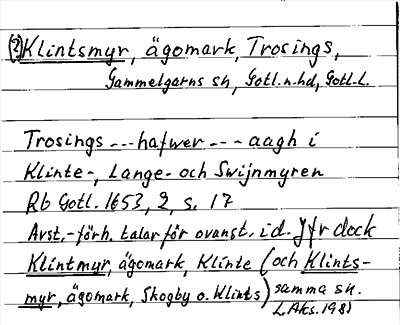 (?) Klintsmyr, ägomark, Trosings,
Gammelgarns sn, Gotl. n. hd, Gotl. L.
Trosings --- hafwer --- aagh i
Klinte-, Lange- och Swijnmyren
Rb Gotl. 1653, 2, s. 17
Avst.-förh. talar för ovanst. id. Jfr dock
Klintmyr, ägomark, Klinte (och Klints-
myr, ägomark, Skogby o. Klints) samma sn.
1981